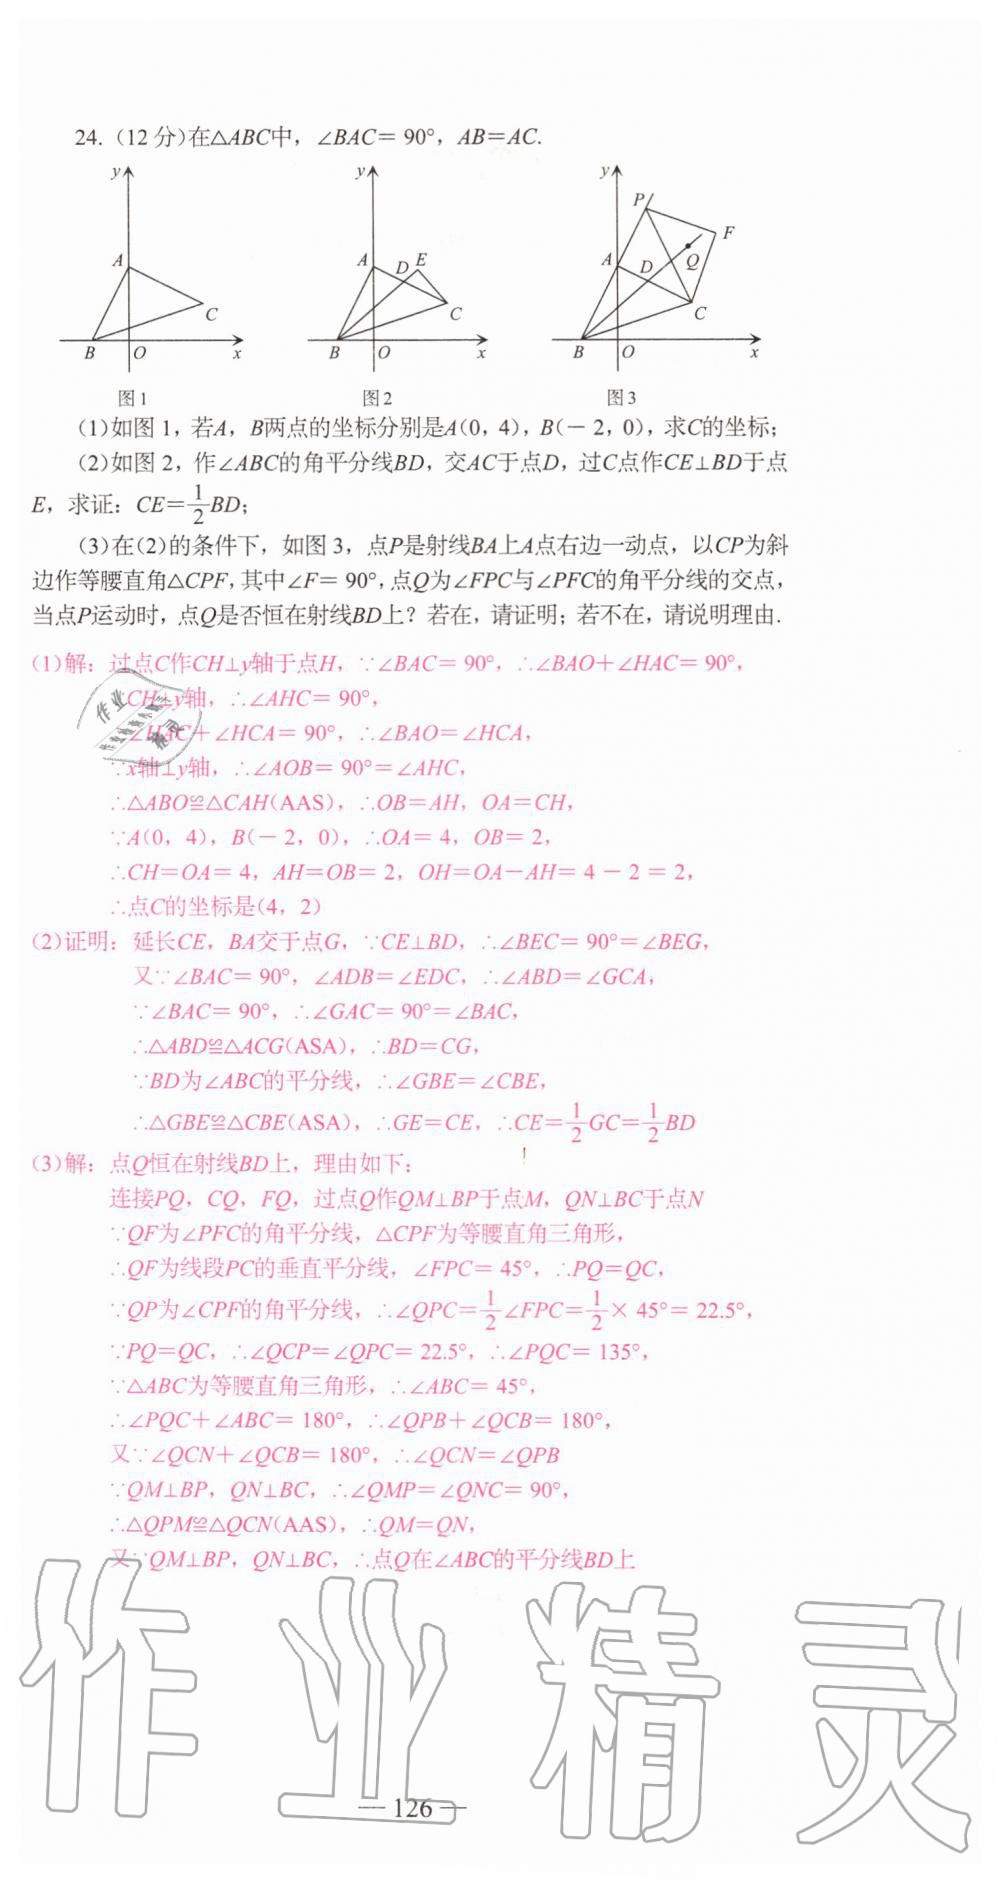 24. (12 分)在△ABC中，∠BAC= 90°，AB=AC.
y
A
B
O
C
x
图 1
y
A
D
E
B
O
C
x
图 2
y
P
F
A
D
Q
B
O
C
x
图 3
(1)如图 1，若A，B两点的坐标分别是A(0，4)，B(－2，0)，求C的坐标；
(2)如图 2，作∠ABC的角平分线BD，交AC于点D，过C点作CE⊥BD于点
E，求证：CE=1/2BD；
(3)在(2)的条件下，如图 3，点P是射线BA上A点右边一动点，以CP为斜
边作等腰直角△CPF，其中∠F= 90°，点Q为∠FPC与∠PFC的角平分线的交点，
当点P运动时，点Q是否恒在射线BD上？若在，请证明；若不在，请说明理由.
(1)解：过点C作CH⊥y轴于点H，∵∠BAC= 90°，∴∠BAO+∠HAC= 90°，
CH⊥y轴，∴∠AHC= 90°，
∠HAC+∠HCA= 90°，∴∠BAO=∠HCA，
∵x轴⊥y轴，∴∠AOB= 90°=∠AHC，
∴△ABO≌△CAH(AAS)，∴OB=AH，OA=CH，
∵A(0，4)，B(－2，0)，∴OA= 4，OB= 2，
∴CH=OA= 4，AH=OB= 2，OH=OA－AH= 4 － 2 = 2，
∴点C的坐标是(4，2)
(2)证明：延长CE，BA交于点G，∵CE⊥BD，∴∠BEC= 90°=∠BEG，
又∵∠BAC= 90°，∠ADB=∠EDC，∴∠ABD=∠GCA，
∵∠BAC= 90°，∴∠GAC= 90°=∠BAC，
∴△ABD≌△ACG(ASA)，∴BD=CG，
∵BD为∠ABC的平分线，∴∠GBE=∠CBE，
∴△GBE≌△CBE(ASA)，∴GE=CE，∴CE=1/2GC=1/2BD
(3)解：点Q恒在射线BD上，理由如下：
连接PQ，CQ，FQ，过点Q作QM⊥BP于点M，QN⊥BC于点N
∵QF为∠PFC的角平分线，△CPF为等腰直角三角形，
∴QF为线段PC的垂直平分线，∠FPC= 45°，∴PQ=QC，
∵QP为∠CPF的角平分线，∴∠QPC=1/2∠FPC=1/2× 45°= 22.5°，
∵PQ=QC，∴∠QCP=∠QPC= 22.5°，∴∠PQC= 135°，
∵△ABC为等腰直角三角形，∴∠ABC= 45°，
∴∠PQC+∠ABC= 180°，∴∠QPB+∠QCB= 180°，
又∵∠QCN+∠QCB= 180°，∴∠QCN=∠QPB
∵QM⊥BP，QN⊥BC，∴∠QMP=∠QNC= 90°，
∴△QPM≌△QCN(AAS)，∴QM=QN，
又∵QM⊥BP，QN⊥BC，∴点Q在∠ABC的平分线BD上
作业精灵
— 126 —